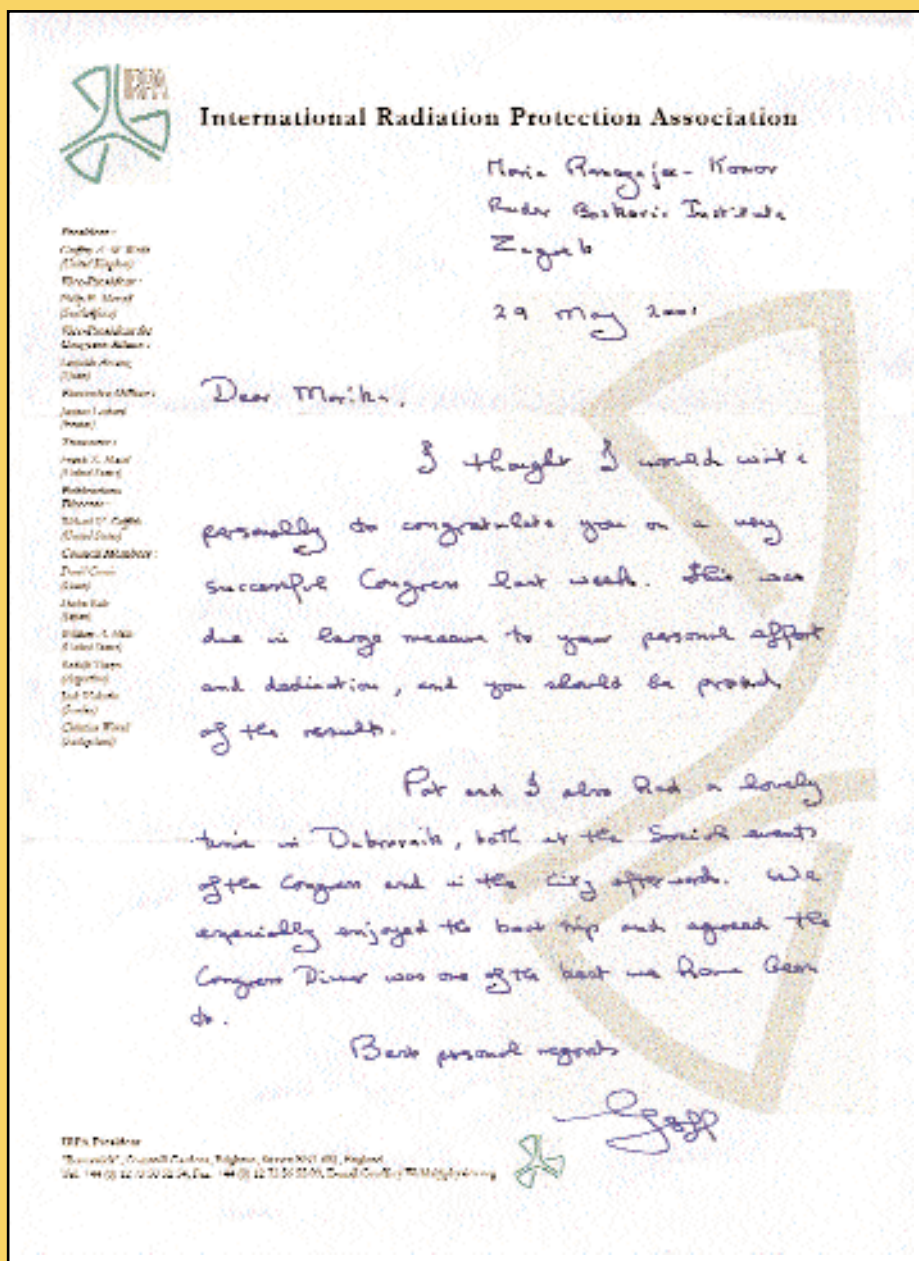 IRPA
International Radiation Protection Association
Maria Ranogajec-Komor
Ruder Boskovic Institute
Zagreb
29 May 2001
President:
(United Kingdom)
Vice-President:
Vice-President for
Congress Affairs:
Executive Officer:
Treasurer:
(United States)
Publications
Director:
(United States)
Council Members:
(United States)
Dear Marika,
I thought I would write
personally to congratulate you on a very
successful Congress last week. This was
due in large measure to your personal effort
and dedication, and you should be proud
of the results.
Pat and I also had a lovely
time in Dubrovnik, both at the Social events
of the Congress and in the City afterwards. We
especially enjoyed the boat trip and agreed the
Congress Dinner was one of the best we have been
to.
Best personal regards
Geoff
IRPA President